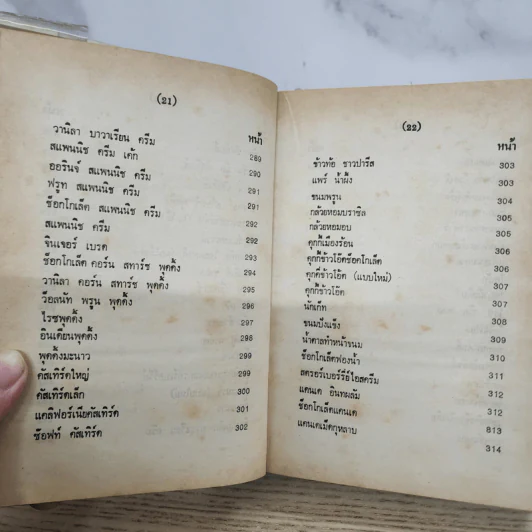 (21)
หน้า
วานิลา บาวาเรียน ครีม 289
สแพนนิช ครีม เค้ก 290
ออรินจ์ สแพนนิช ครีม 291
ฟรูท สแพนนิช ครีม 291
ช็อกโกเล็ต สแพนนิช ครีม 292
สแพนนิช ครีม 292
จินเจอร์ เบรด 293
ช็อกโกเล็ต คอร์น สทาร์ช พุดดิ้ง 294
วานิลา คอร์น สทาร์ช พุดดิ้ง 295
ว๊อลนัท พรูน พุดดิ้ง 296
ไรซพุดดิ้ง 297
อินเดียนพุดดิ้ง 298
พุดดิ้งมะนาว 299
คัสเทิร์ดใหญ่ 299
คัสเทิร์ดเล็ก 300
แคลิฟอร์เนียคัสเทิร์ด 301
ซ๊อฟท์ คัสเทิร์ด 302
(22)
หน้า
ข้าวท้อ ชาวปารีส 303
แพร์ น้ำผึ้ง 303
ขนมพรูน 304
กล้วยหอมบราซิล 305
กล้วยหอมอบ 305
คุกกี้เมืองร้อน 306
คุกกี้ข้าวโอ๊ตช็อกโกเล็ต 306
คุกกี้ข้าวโอ๊ต (แบบใหม่) 307
คุกกี้ข้าวโอ๊ต 307
นักเก็ท 308
ขนมปังแข็ง 309
น้ำตาลทำหน้าขนม 310
ช็อกโกเล็ตฟองน้ำ 311
312
แคนเด อินทผลัม 312
ช็อกโกเล็ตแคนเด 813
แคนเดเม็ดกุหลาบ 314